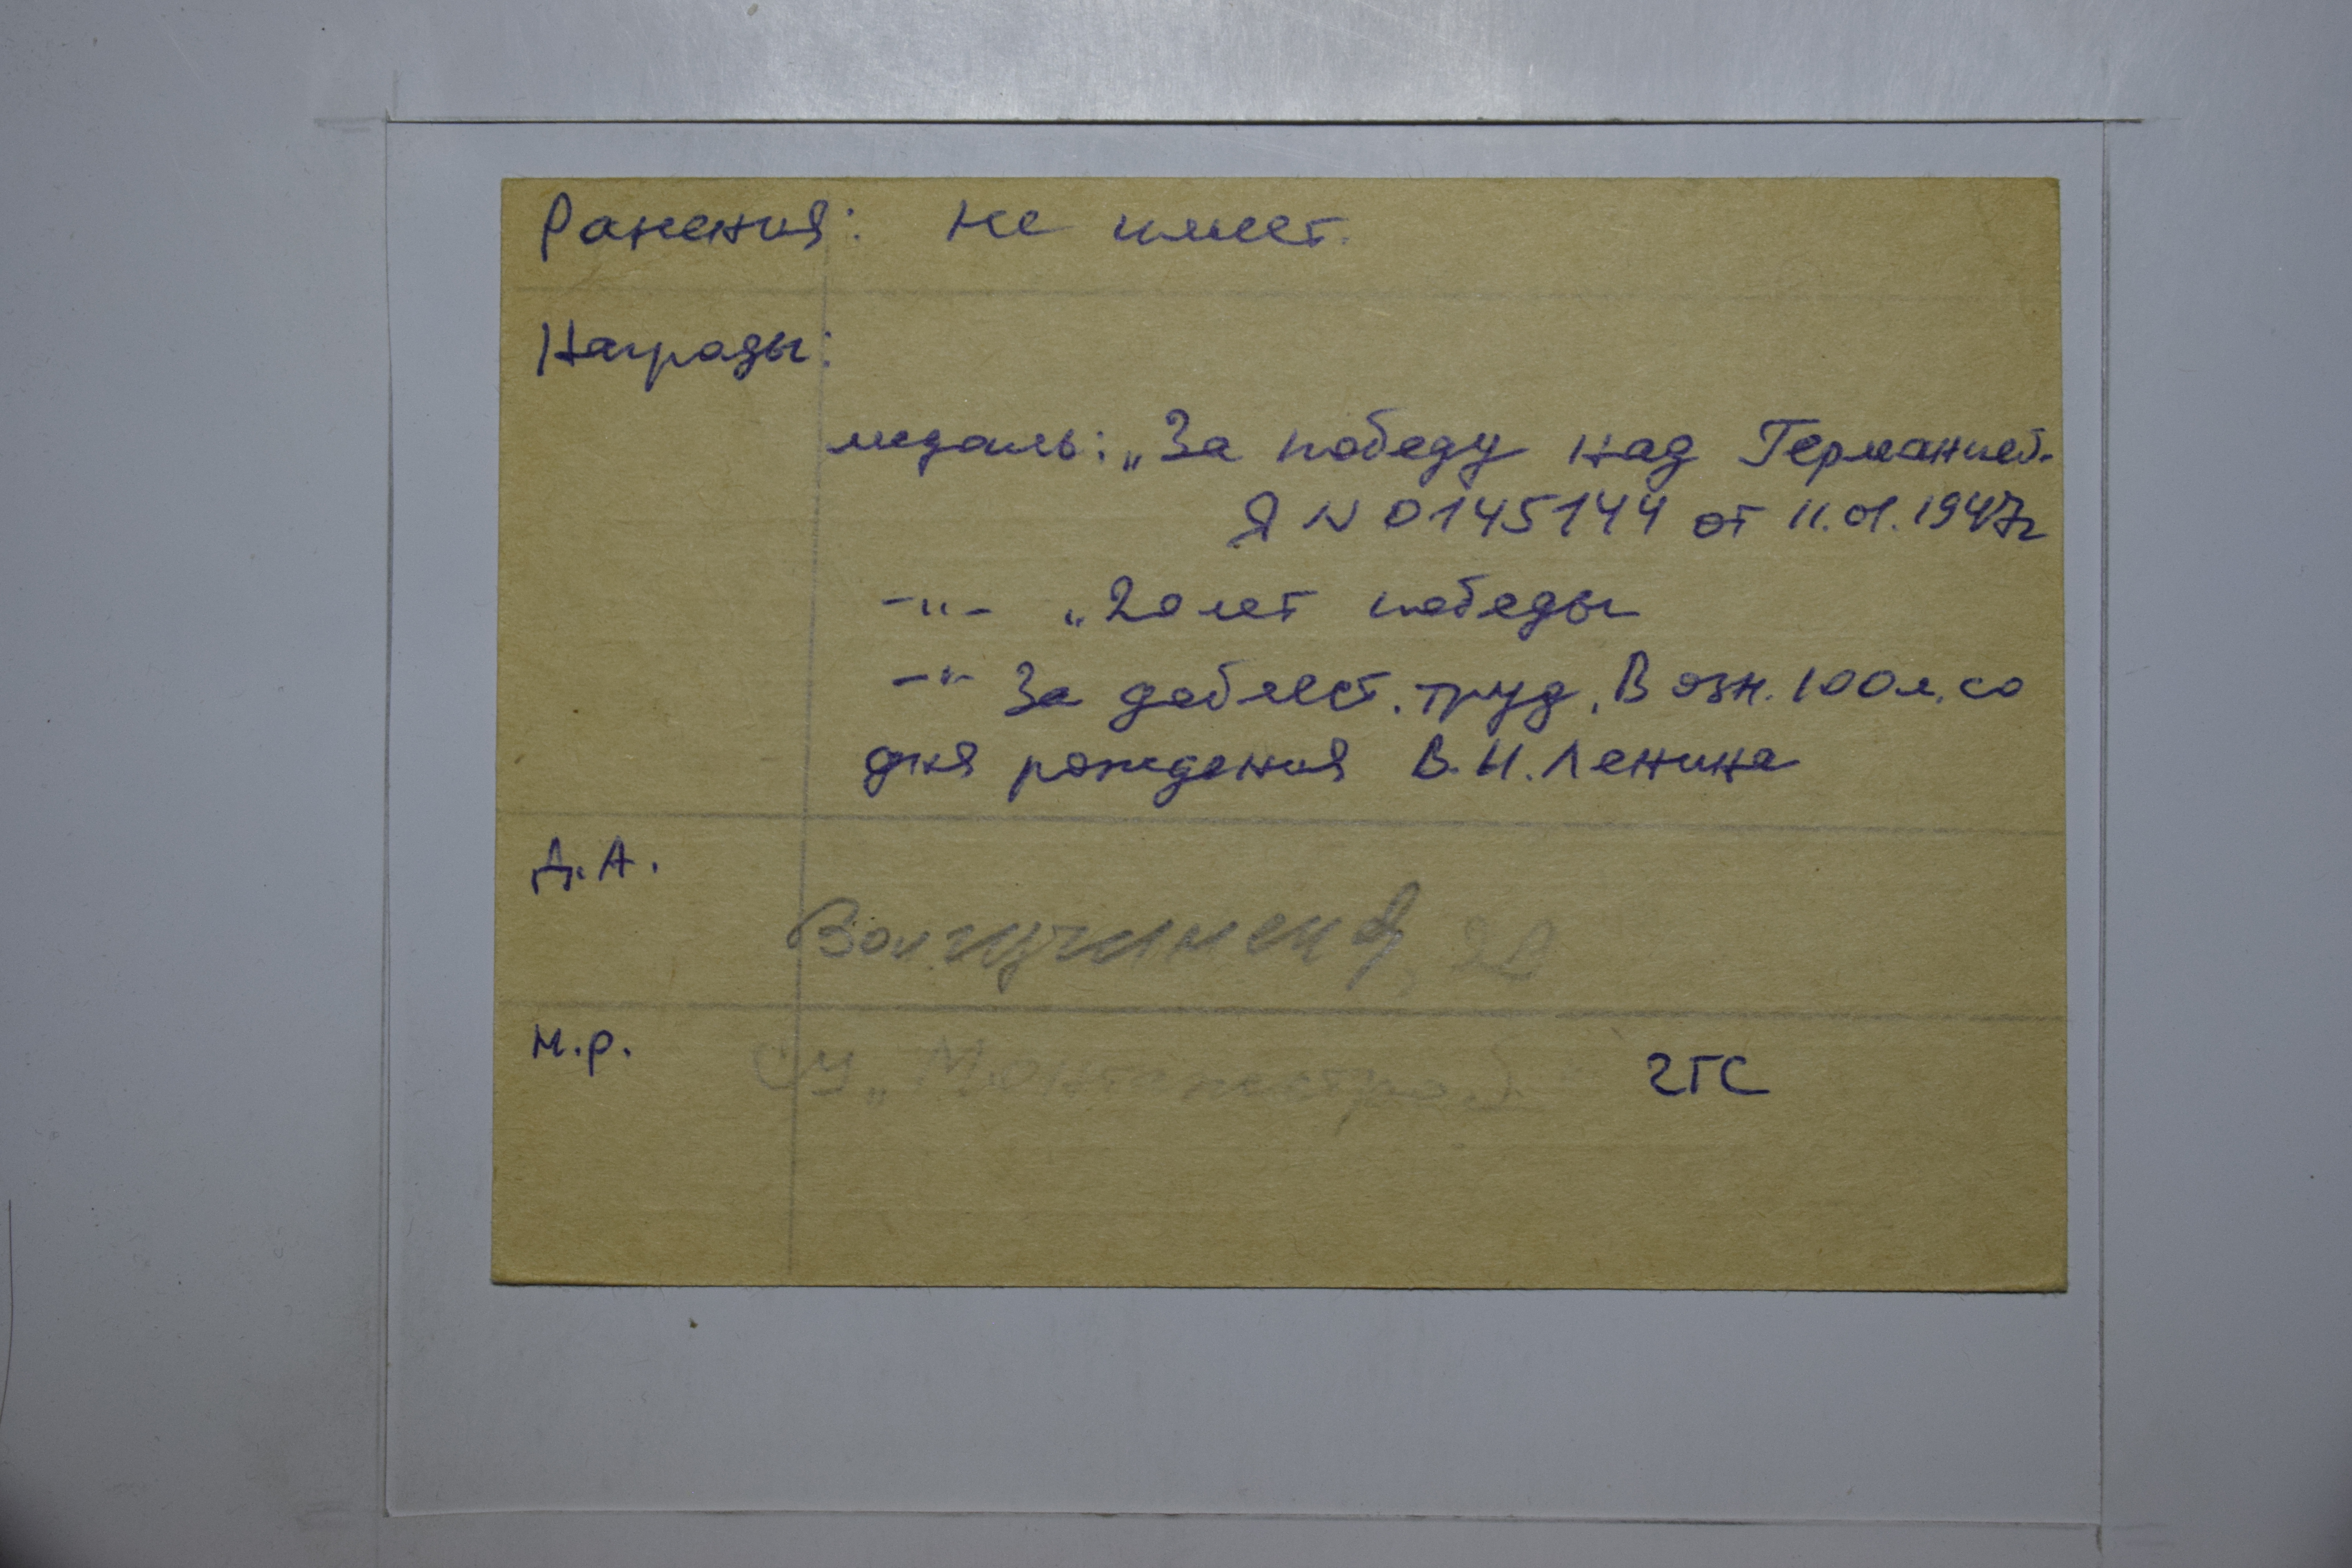 Ранения: не имеет.
Награды:
медаль: „За победу над Германией.
Я N 0145144 от 11.01.1947г
-"- „20 лет победы
-"- За доблест. труд. В озн. 100 л. со
дня рождения В.И. Ленина
Д.А.
М.р.
СУ „
2ГС